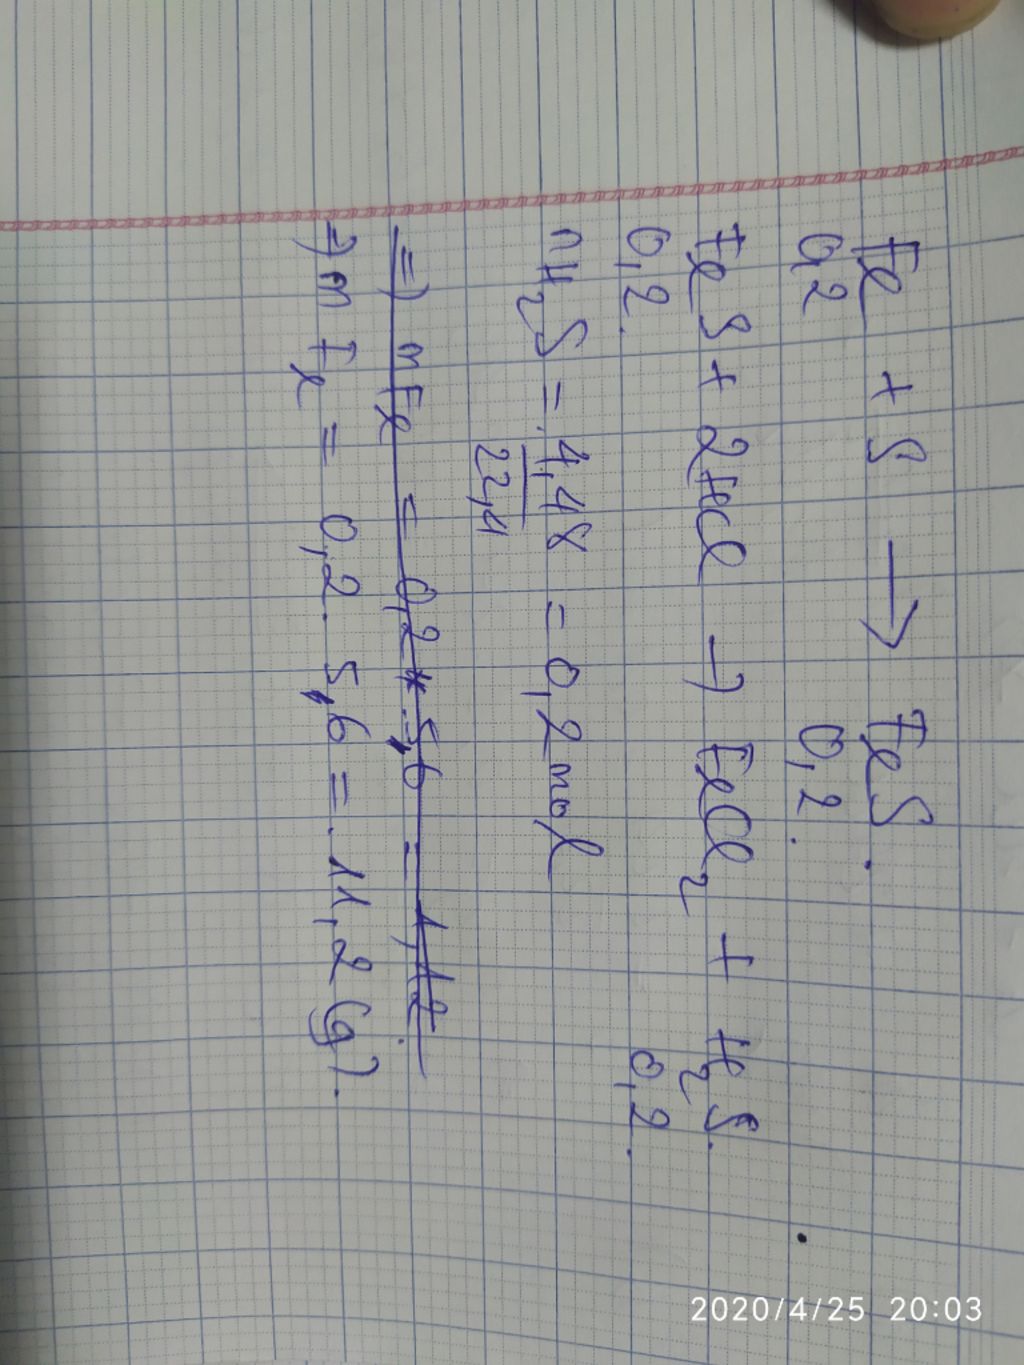 Fe + S → FeS.
0,2 0,2.
FeS + 2HCl → FeCl2 + H2S.
0,2. 0,2.
nH2S = 4,48 = 0,2 mol
22,4
=) mFe = 0,2 * 5,6 = 1,12.
=) mFe = 0,2. 5,6 = 11,2 (g).
2020/4/25 20:03